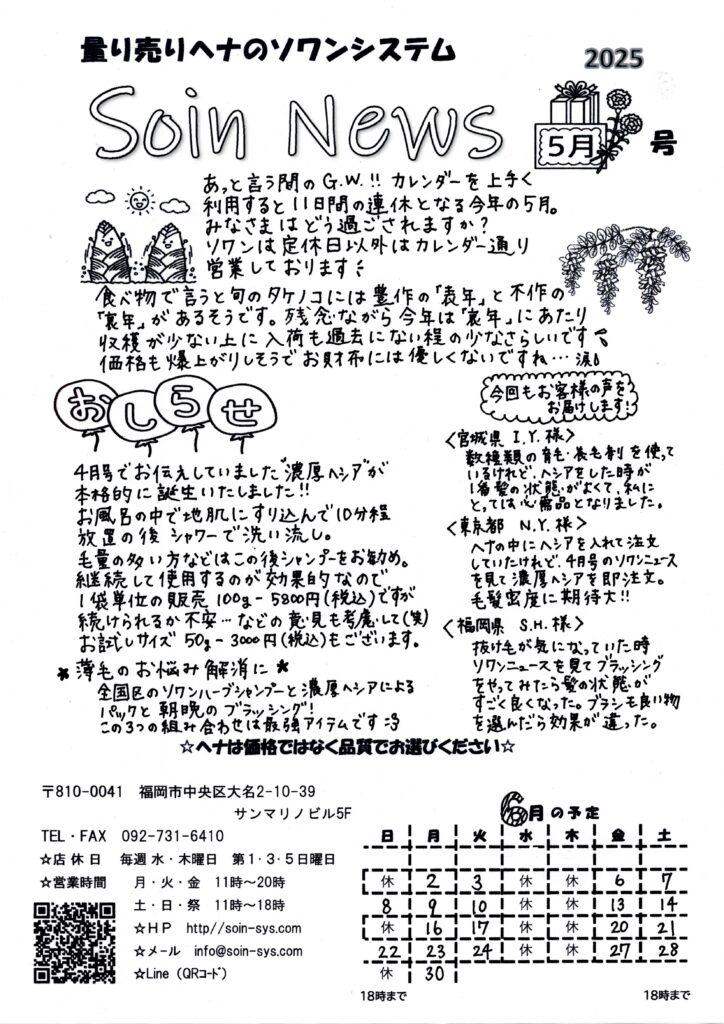 量り売りヘナのソワンシステム
2025
Soin News
5月
号
あっと言う間のG.W.!! カレンダーを上手く
利用すると11日間の連休となる今年の5月。
みなさまはどう過ごされますか?
ソワンは定休日以外はカレンダー通り
営業しております
食べ物で言うと旬のタケノコには豊作の「表年」と不作の
「裏年」があるそうです。残念ながら今年は「裏年」にあたり
収穫が少ない上に入荷も過去にない程の少なさらしいです
価格も爆上がりしそうでお財布には優しくないですね…涙
おしらせ
4月号でお伝えしていました"濃厚ヘシア"が
本格的に誕生いたしました!!
お風呂の中で地肌にすり込んで10分程
放置の後シャワーで洗い流し。
毛量の多い方などはこの後シャンプーをお勧め。
継続して使用するのが効果的なので
1袋単位の販売 100g-5800円(税込)ですが
続けられるか不安…などの意見も考慮して(笑)
お試しサイズ 50g-3000円(税込)もございます。
*薄毛のお悩み解消に*
全国区のソワンハーブシャンプーと濃厚ヘシアによる
パックと朝晩のブラッシング!
この3つの組み合わせは最強アイテムです
今回もお客様の声を
お届けします!
<宮城県 I.Y.様>
数種類の育毛・養毛剤を使って
いるけれど、ヘシアをした時が
1番髪の状態がよくて、私に
とっては必需品となりました。
<東京都 N.Y.様>
ヘナの中にヘシアを入れて注文
していたけれど、4月号のソワンニュース
を見て濃厚ヘシアを即注文。
毛髪密度に期待大!!
<福岡県 S.H.様>
抜け毛が気になっていた時
ソワンニュースを見てブラッシング
をやってみたら髪の状態が
すごく良くなった。ブラシも良い物
を選んだら効果が違った。
☆ヘナは価格ではなく品質でお選びください☆
〒810-0041 福岡市中央区大名2-10-39
サンマリノビル5F
TEL・FAX 092-731-6410
☆店休日 毎週水・木曜日 第1・3・5日曜日
☆営業時間 月・火・金 11時~20時
土・日・祭 11時~18時
☆HP http//soin-sys.com
☆メール info@soin-sys.com
☆Line(QRコード)
6月の予定
日 月 火 水 木 金 土
休 2 3 休 休 6 7
8 9 10 休 休 13 14
休 16 17 休 休 20 21
22 23 24 休 休 27 28
休 30
18時まで 18時まで